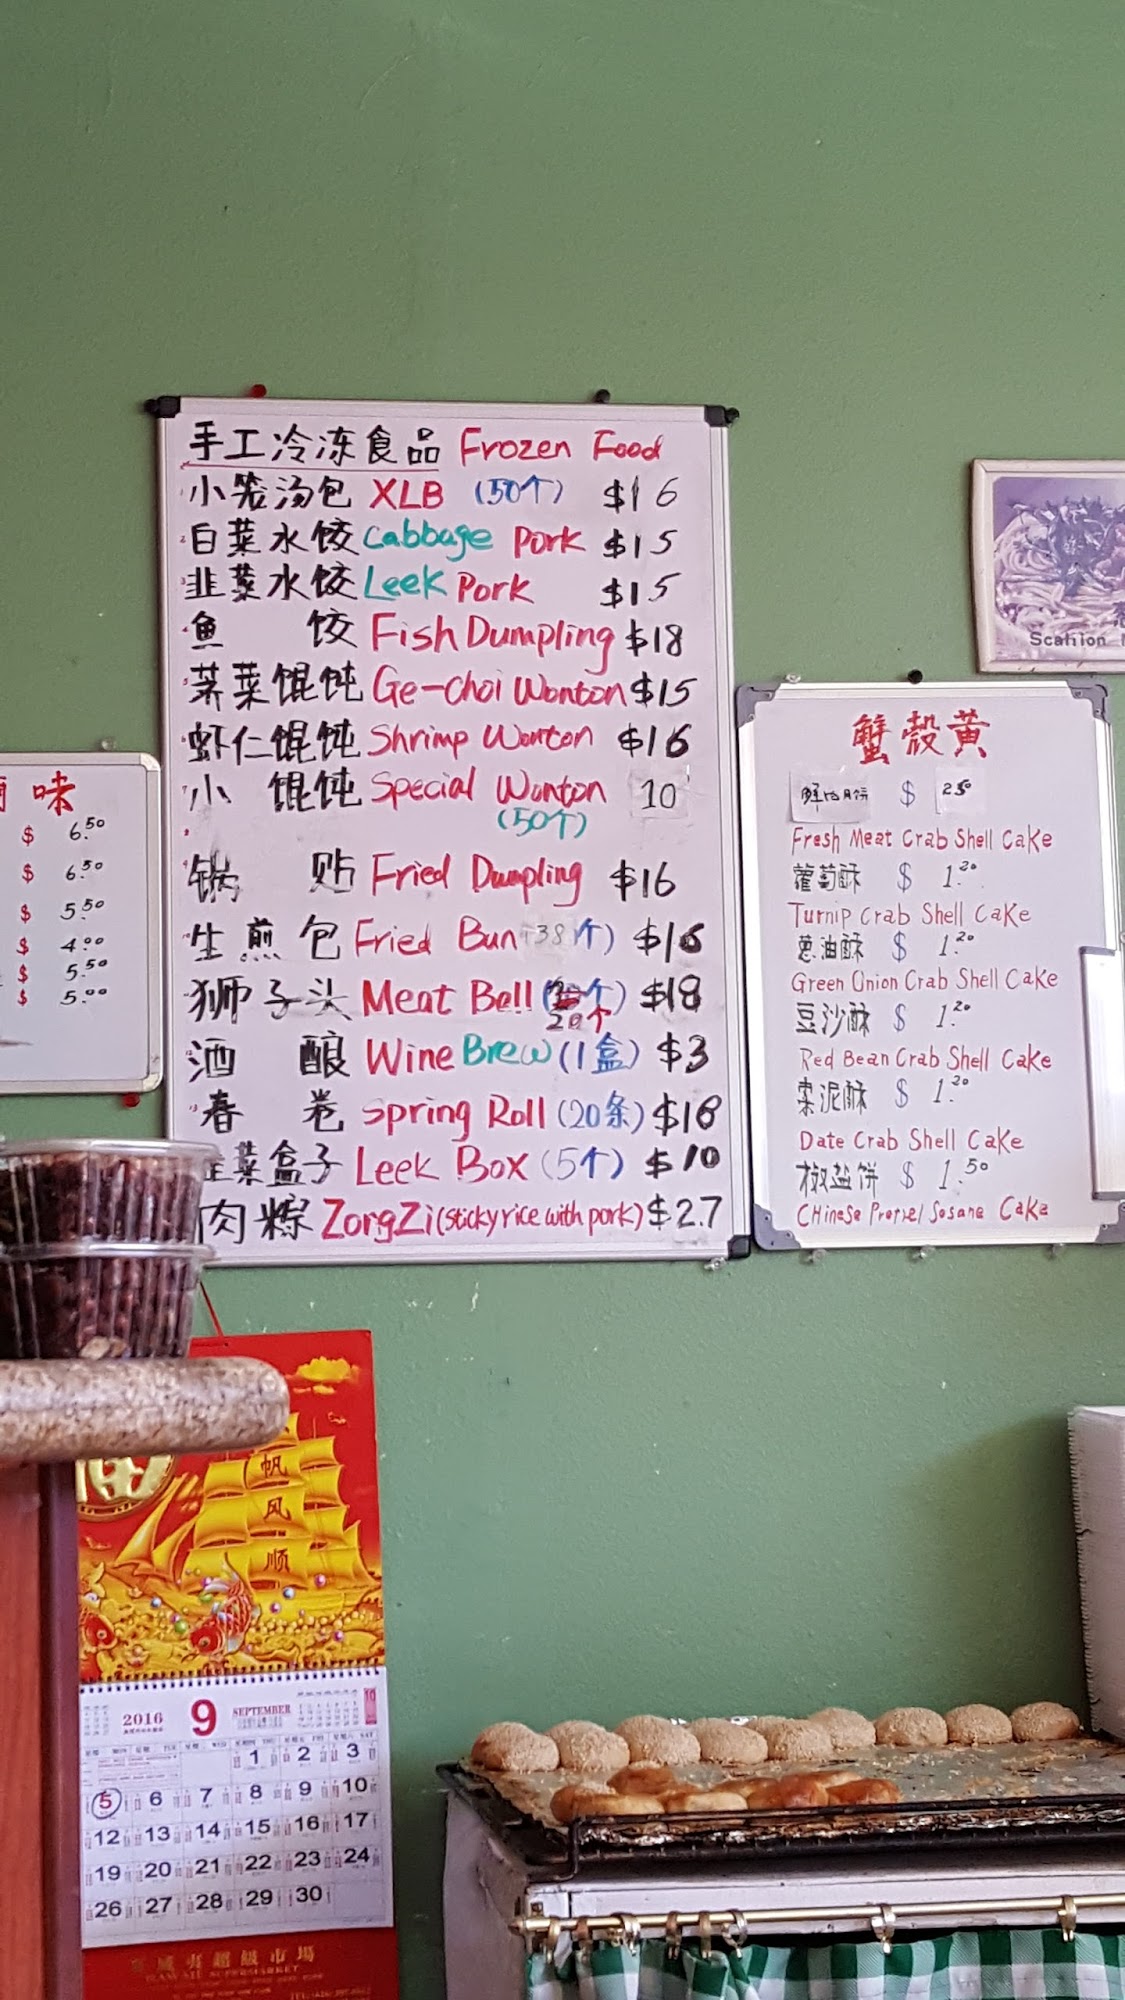 手工冷冻食品 Frozen Food
小笼汤包 XLB (50个) $16
白菜水饺 Cabbage Pork $15
韭菜水饺 Leek Pork $15
鱼 饺 Fish Dumpling $18
荠菜馄饨 Ge-Choi Wonton $15
虾仁馄饨 Shrimp Wonton $16
小 馄饨 Special Wonton 10
(50个)
锅 贴 Fried Dumpling $16
生煎包 Fried Bun (38个) $16
狮子头 Meat Ball $18
20个
酒 酿 Wine Brew (1盒) $3
春 卷 Spring Roll (20条) $18
韭菜盒子 Leek Box (5个) $10
肉粽 ZongZi (sticky rice with pork) $2.7
味
$ 6.50
$ 6.50
$ 5.50
$ 4.00
$ 5.50
$ 5.00
Scallion
蟹殼黄
鲜肉月饼 $ 2.50
Fresh Meat Crab Shell Cake
蘿蔔酥 $ 1.20
Turnip Crab Shell Cake
蔥油酥 $ 1.20
Green Onion Crab Shell Cake
豆沙酥 $ 1.20
Red Bean Crab Shell Cake
棗泥酥 $ 1.20
Date Crab Shell Cake
椒盐饼 $ 1.50
CHinese Pretzel Sesame Cake
帆
风
顺
2016 9 SEPTEMBER
1 2 3
5 6 7 8 9 10
12 13 14 15 16 17
19 20 21 22 23 24
26 27 28 29 30
夏威夷超級市場
HAWAII SUPERMARKET